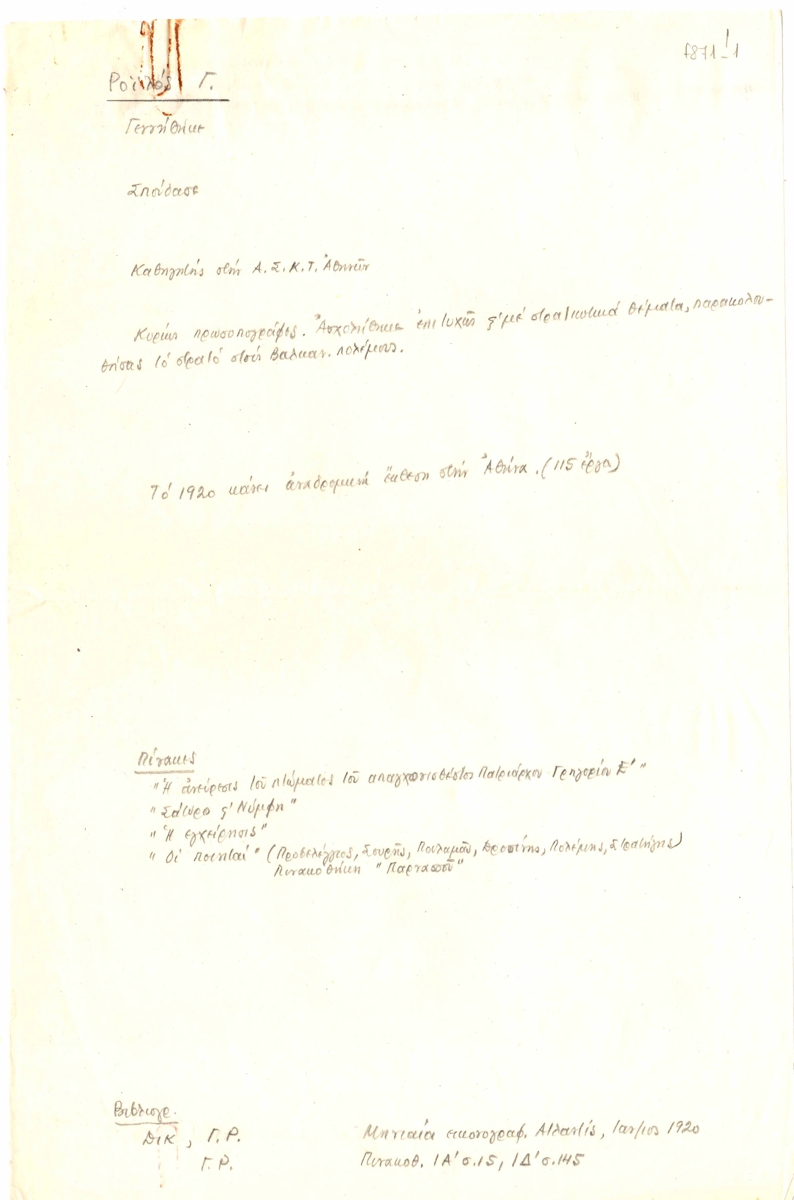 f871/1
Ροϊλός Γ.
Γεννήθηκε
Σπούδασε
Καθηγητής στήν Α.Σ.Κ.Τ. Ἀθηνῶν
Κυρίως προσωπογράφος. Ἀσχολήθηκε ἐπιτυχῶς ϛ' μέ στρατιωτικά θέματα, παρακολου-
θήσας τό στρατό στούς Βαλκαν. πολέμους.
Τό 1920 κάνει ἀναδρομική ἔκθεση στήν Ἀθήνα. (115 ἔργα)
Πίνακες
"Ἡ ἀνεύρεσις τοῦ πτώματος τοῦ απαγχονισθέντος Πατριάρχου Γρηγορίου Ε'"
"Σάτυρο ϛ' Νύμφη"
"Ἡ εγχείρησις"
"Οἱ ποιηταί" (Προβελέγγιος, Σουρῆς, Παλαμᾶς, Δροσίνης, Πολέμης, Στρατήγης)
Πινακοθήκη "Παρνασσοῦ"
Βιβλιογρ.
Δικ, Γ.Ρ. Μηνιαία εικονογραφ. Ατλαντίς, Ιαν/ιος 1920
Γ.Ρ. Πινακοθ. ΙΑ' σ.15, ΙΔ' σ.145